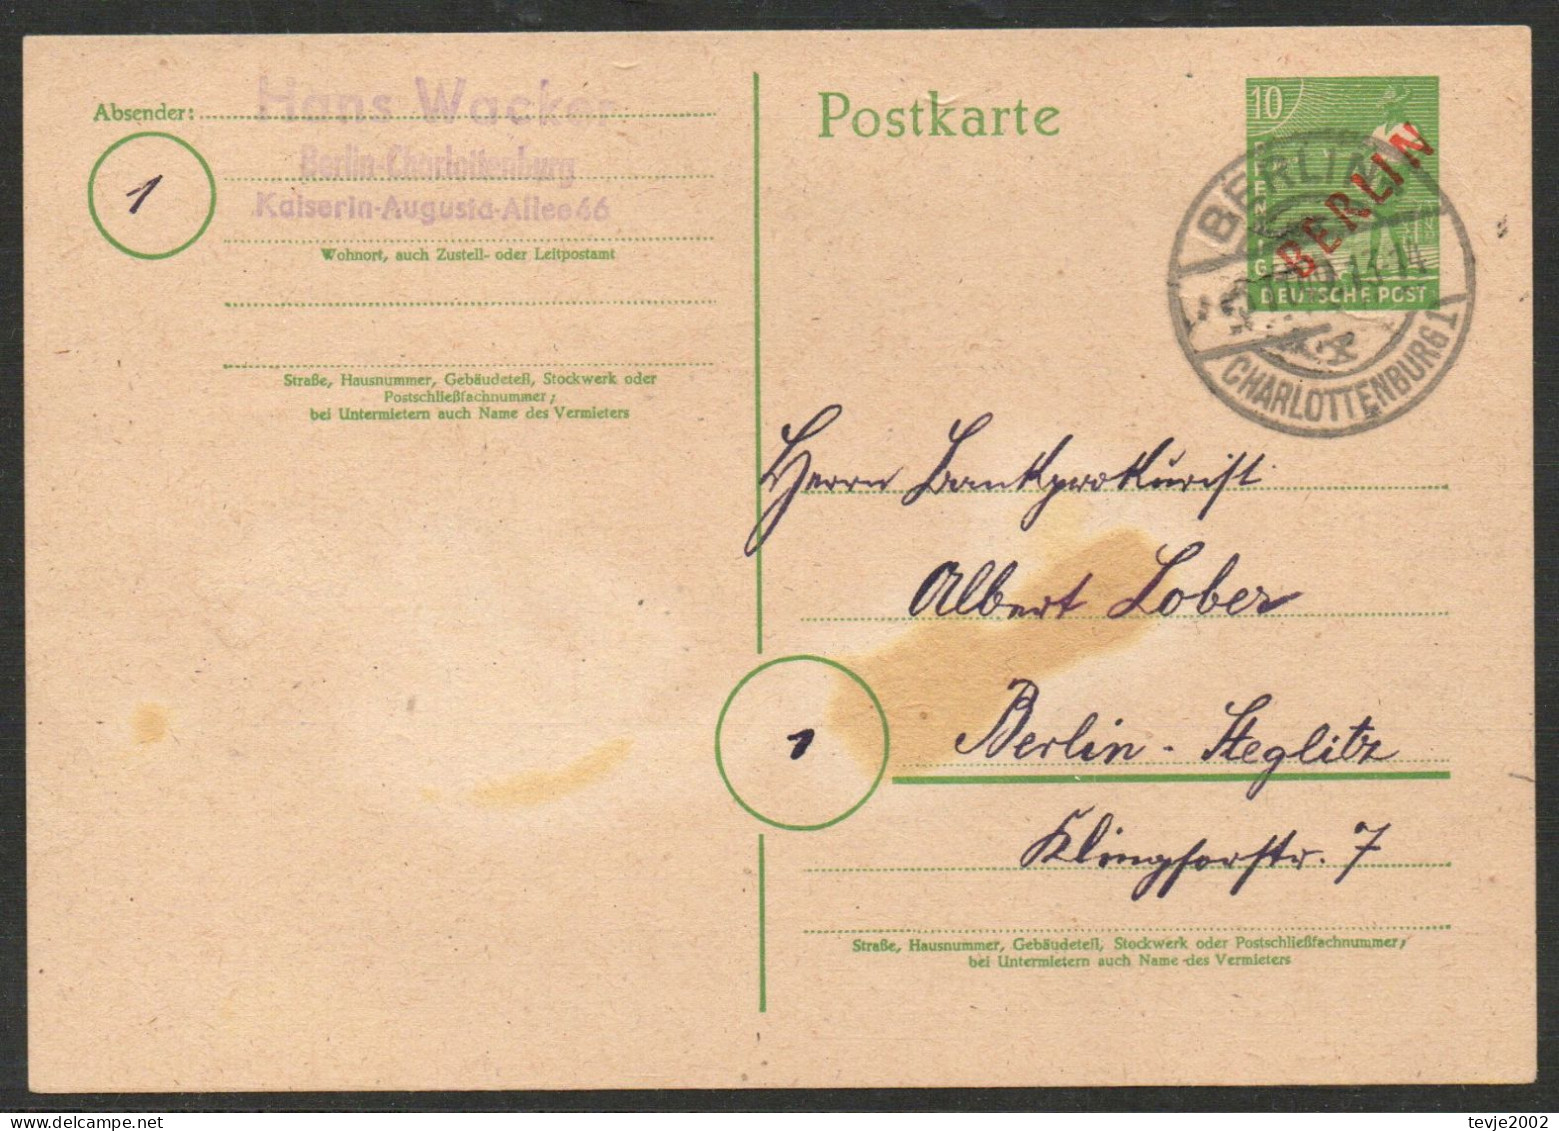 Absender:
Hans Wacker
Berlin-Charlottenburg
Kaiserin-Augusta-Allee 66
1
Wohnort, auch Zustell- oder Leitpostamt
Straße, Hausnummer, Gebäudeteil, Stockwerk oder
Postschließfachnummer;
bei Untermietern auch Name des Vermieters
Postkarte
10
BERLIN
DEUTSCHE POST
BERLIN
13-14
CHARLOTTENBURG 1
Herrn Bankprokurist
Albert Lober
1
Berlin - Steglitz
Klingsorstr. 7
Straße, Hausnummer, Gebäudeteil, Stockwerk oder Postschließfachnummer;
bei Untermietern auch Name des Vermieters
tevje2002